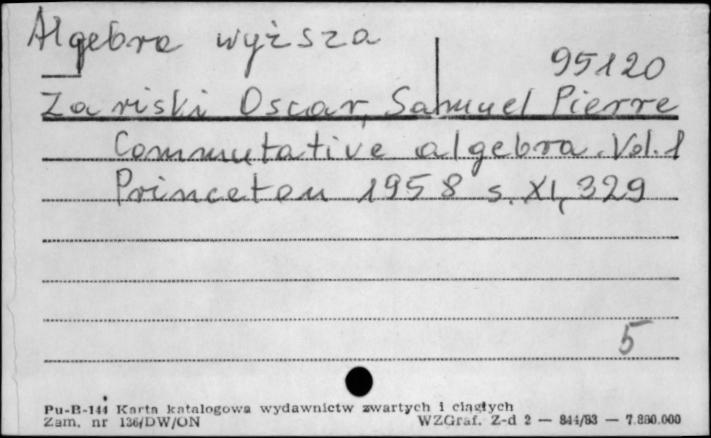 Algebra wyższa
95120
Zariski Oscar, Samuel Pierre
Commutative algebra. Vol. 1
Princeton 1958 s. XI, 329
5
Pu-B-144 Karta katalogowa wydawnictw zwartych i ciągłych
Zam. nr 136/DW/ON WZGraf. Z-d 2 — 844/83 — 7.800.000